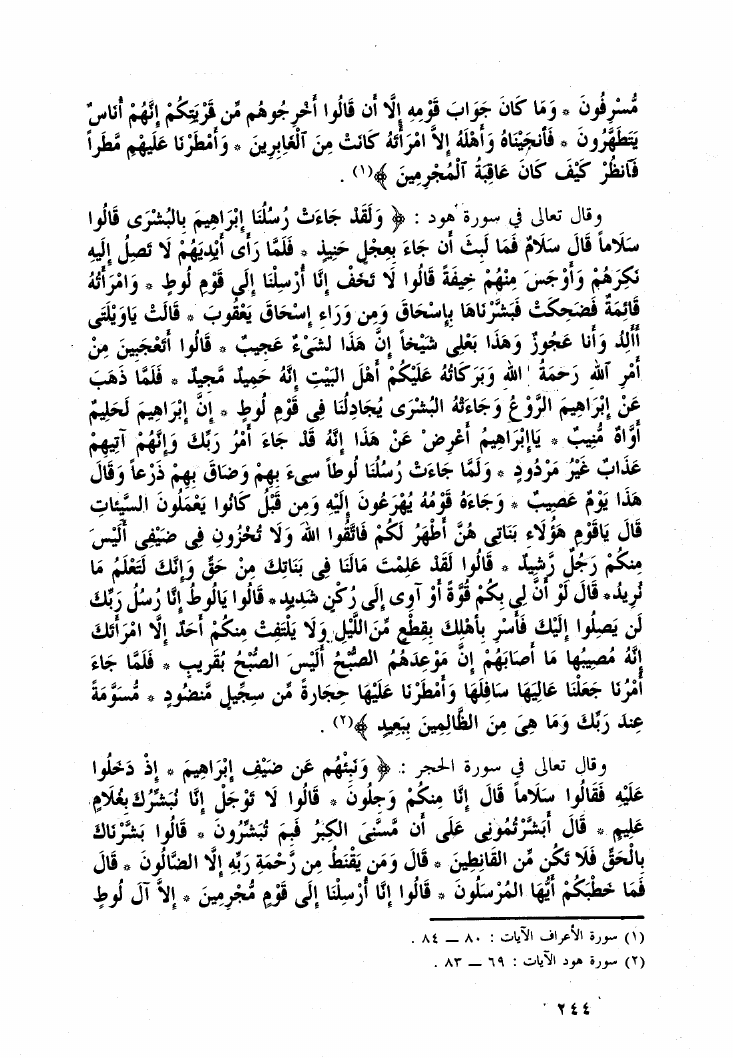 مُّسْرِفُونَ * وَمَا كَانَ جَوَابَ قَوْمِهِ إِلَّا أَن قَالُوا أَخْرِجُوهُم مِّن قَرْيَتِكُمْ إِنَّهُمْ أُنَاسٌ
يَتَطَهَّرُونَ * فَأَنجَيْنَاهُ وَأَهْلَهُ إِلاَّ امْرَأَتَهُ كَانَتْ مِنَ ٱلْغَابِرِينَ * وَأَمْطَرْنَا عَلَيْهِم مَّطَراً
فَٱنظُرْ كَيْفَ كَانَ عَاقِبَةُ ٱلْمُجْرِمِينَ ﴾(١) .
وقال تعالى في سورة هود : ﴿ وَلَقَدْ جَاءَتْ رُسُلُنَا إِبْرَاهِيمَ بِالبُشْرَى قَالُوا
سَلَاماً قَالَ سَلَامٌ فَمَا لَبِثَ أَن جَاءَ بِعِجْلٍ حَنِيذٍ * فَلَمَّا رَأَى أَيْدِيَهُمْ لَا تَصِلُ إِلَيْهِ
نَكِرَهُمْ وَأَوْجَسَ مِنْهُمْ خِيفَةً قَالُوا لَا تَخَفْ إِنَّا أُرْسِلْنَا إِلَى قَوْمِ لُوطٍ * وَامْرَأَتُهُ
قَائِمَةٌ فَضَحِكَتْ فَبَشَّرْنَاهَا بِإِسْحَاقَ وَمِن وَرَاءِ إِسْحَاقَ يَعْقُوبَ * قَالَتْ يَاوَيْلَتَى
أَأَلِدُ وَأَنا عَجُوزٌ وَهَذَا بَعْلِى شَيْخاً إِنَّ هَذَا لَشَىْءٌ عَجِيبٌ * قَالُوا أَتَعْجَبِينَ مِنْ
أَمْرِ ٱلله رَحْمَةُ الله وَبَرَكَاتُهُ عَلَيْكُمْ أَهْلَ البَيْتِ إِنَّهُ حَمِيدٌ مَّجِيدٌ * فَلَمَّا ذَهَبَ
عَنْ إِبْرَاهِيمَ الرَّوْعُ وَجَاءَتْهُ البُشْرَى يُجَادِلُنَا فِى قَوْمِ لُوطٍ * إِنَّ إِبْرَاهِيمَ لَحَلِيمٌ
أَوَّاهٌ مُّنِيبٌ * يَاإِبْرَاهِيمُ أَعْرِضْ عَنْ هَذَا إِنَّهُ قَدْ جَاءَ أَمْرُ رَبِّكَ وَإِنَّهُمْ آتِيهِمْ
عَذَابٌ غَيْرُ مَرْدُودٍ * وَلَمَّا جَاءَتْ رُسُلُنَا لُوطاً سِىءَ بِهِمْ وَضَاقَ بِهِمْ ذَرْعاً وَقَالَ
هَذَا يَوْمٌ عَصِيبٌ * وَجَاءَهُ قَوْمُهُ يُهْرَعُونَ إِلَيْهِ وَمِن قَبْلُ كَانُوا يَعْمَلُونَ السَّيِّئَاتِ
قَالَ يَاقَوْمِ هَؤُلَاءِ بَنَاتِى هُنَّ أَطْهَرُ لَكُمْ فَاتَّقُوا اللهَ وَلَا تُخْزُونِ فِى ضَيْفِى أَلَيْسَ
مِنكُمْ رَجُلٌ رَّشِيدٌ * قَالُوا لَقَدْ عَلِمْتَ مَالَنَا فِى بَنَاتِكَ مِنْ حَقٍّ وَإِنَّكَ لَتَعْلَمُ مَا
نُرِيدُ * قَالَ لَوْ أَنَّ لِى بِكُمْ قُوَّةً أَوْ آوِى إِلَى رُكْنٍ شَدِيدٍ * قَالُوا يَالُوطُ إِنَّا رُسُلُ رَبِّكَ
لَن يَصِلُوا إِلَيْكَ فَأَسْرِ بِأَهْلِكَ بِقِطْعٍ مِّنَ اللَّيْلِ وَلَا يَلْتَفِتْ مِنكُمْ أَحَدٌ إِلَّا امْرَأَتَكَ
إِنَّهُ مُصِيبُهَا مَا أَصَابَهُمْ إِنَّ مَوْعِدَهُمُ الصُّبْحُ أَلَيْسَ الصُّبْحُ بِقَرِيبٍ * فَلَمَّا جَاءَ
أَمْرُنَا جَعَلْنَا عَالِيَهَا سَافِلَهَا وَأَمْطَرْنَا عَلَيْهَا حِجَارةً مِّن سِجِّيلٍ مَّنضُودٍ * مُسَوَّمَةً
عِندَ رَبِّكَ وَمَا هِىَ مِنَ الظَّالِمِينَ بِبَعِيدٍ ﴾(٢) .
وقال تعالى في سورة الحجر : ﴿ وَنَبِّئْهُم عَن ضَيْفِ إِبْرَاهِيمَ * إِذْ دَخَلُوا
عَلَيْهِ فَقَالُوا سَلَاماً قَالَ إِنَّا مِنكُمْ وَجِلُونَ * قَالُوا لَا تَوْجَلْ إِنَّا نُبَشِّرُكَ بِغُلَامٍ
عَلِيمٍ * قَالَ أَبَشَّرْتُمُونِى عَلَى أَن مَّسَّنِىَ الكِبَرُ فَبِمَ تُبَشِّرُونَ * قَالُوا بَشَّرْنَاكَ
بِالْحَقِّ فَلَا تَكُن مِّنَ القَانِطِينَ * قَالَ وَمَن يَقْنَطُ مِن رَّحْمَةِ رَبِّهِ إِلَّا الضَّالُّونَ * قَالَ
فَمَا خَطْبُكُمْ أَيُّهَا المُرْسَلُونَ * قَالُوا إِنَّا أُرْسِلْنَا إِلَى قَوْمٍ مُّجْرِمِينَ * إِلاَّ آلَ لُوطٍ
(١) سورة الأعراف الآيات : ٨٠ — ٨٤ .
(٢) سورة هود الآيات : ٦٩ — ٨٣ .
٢٤٤